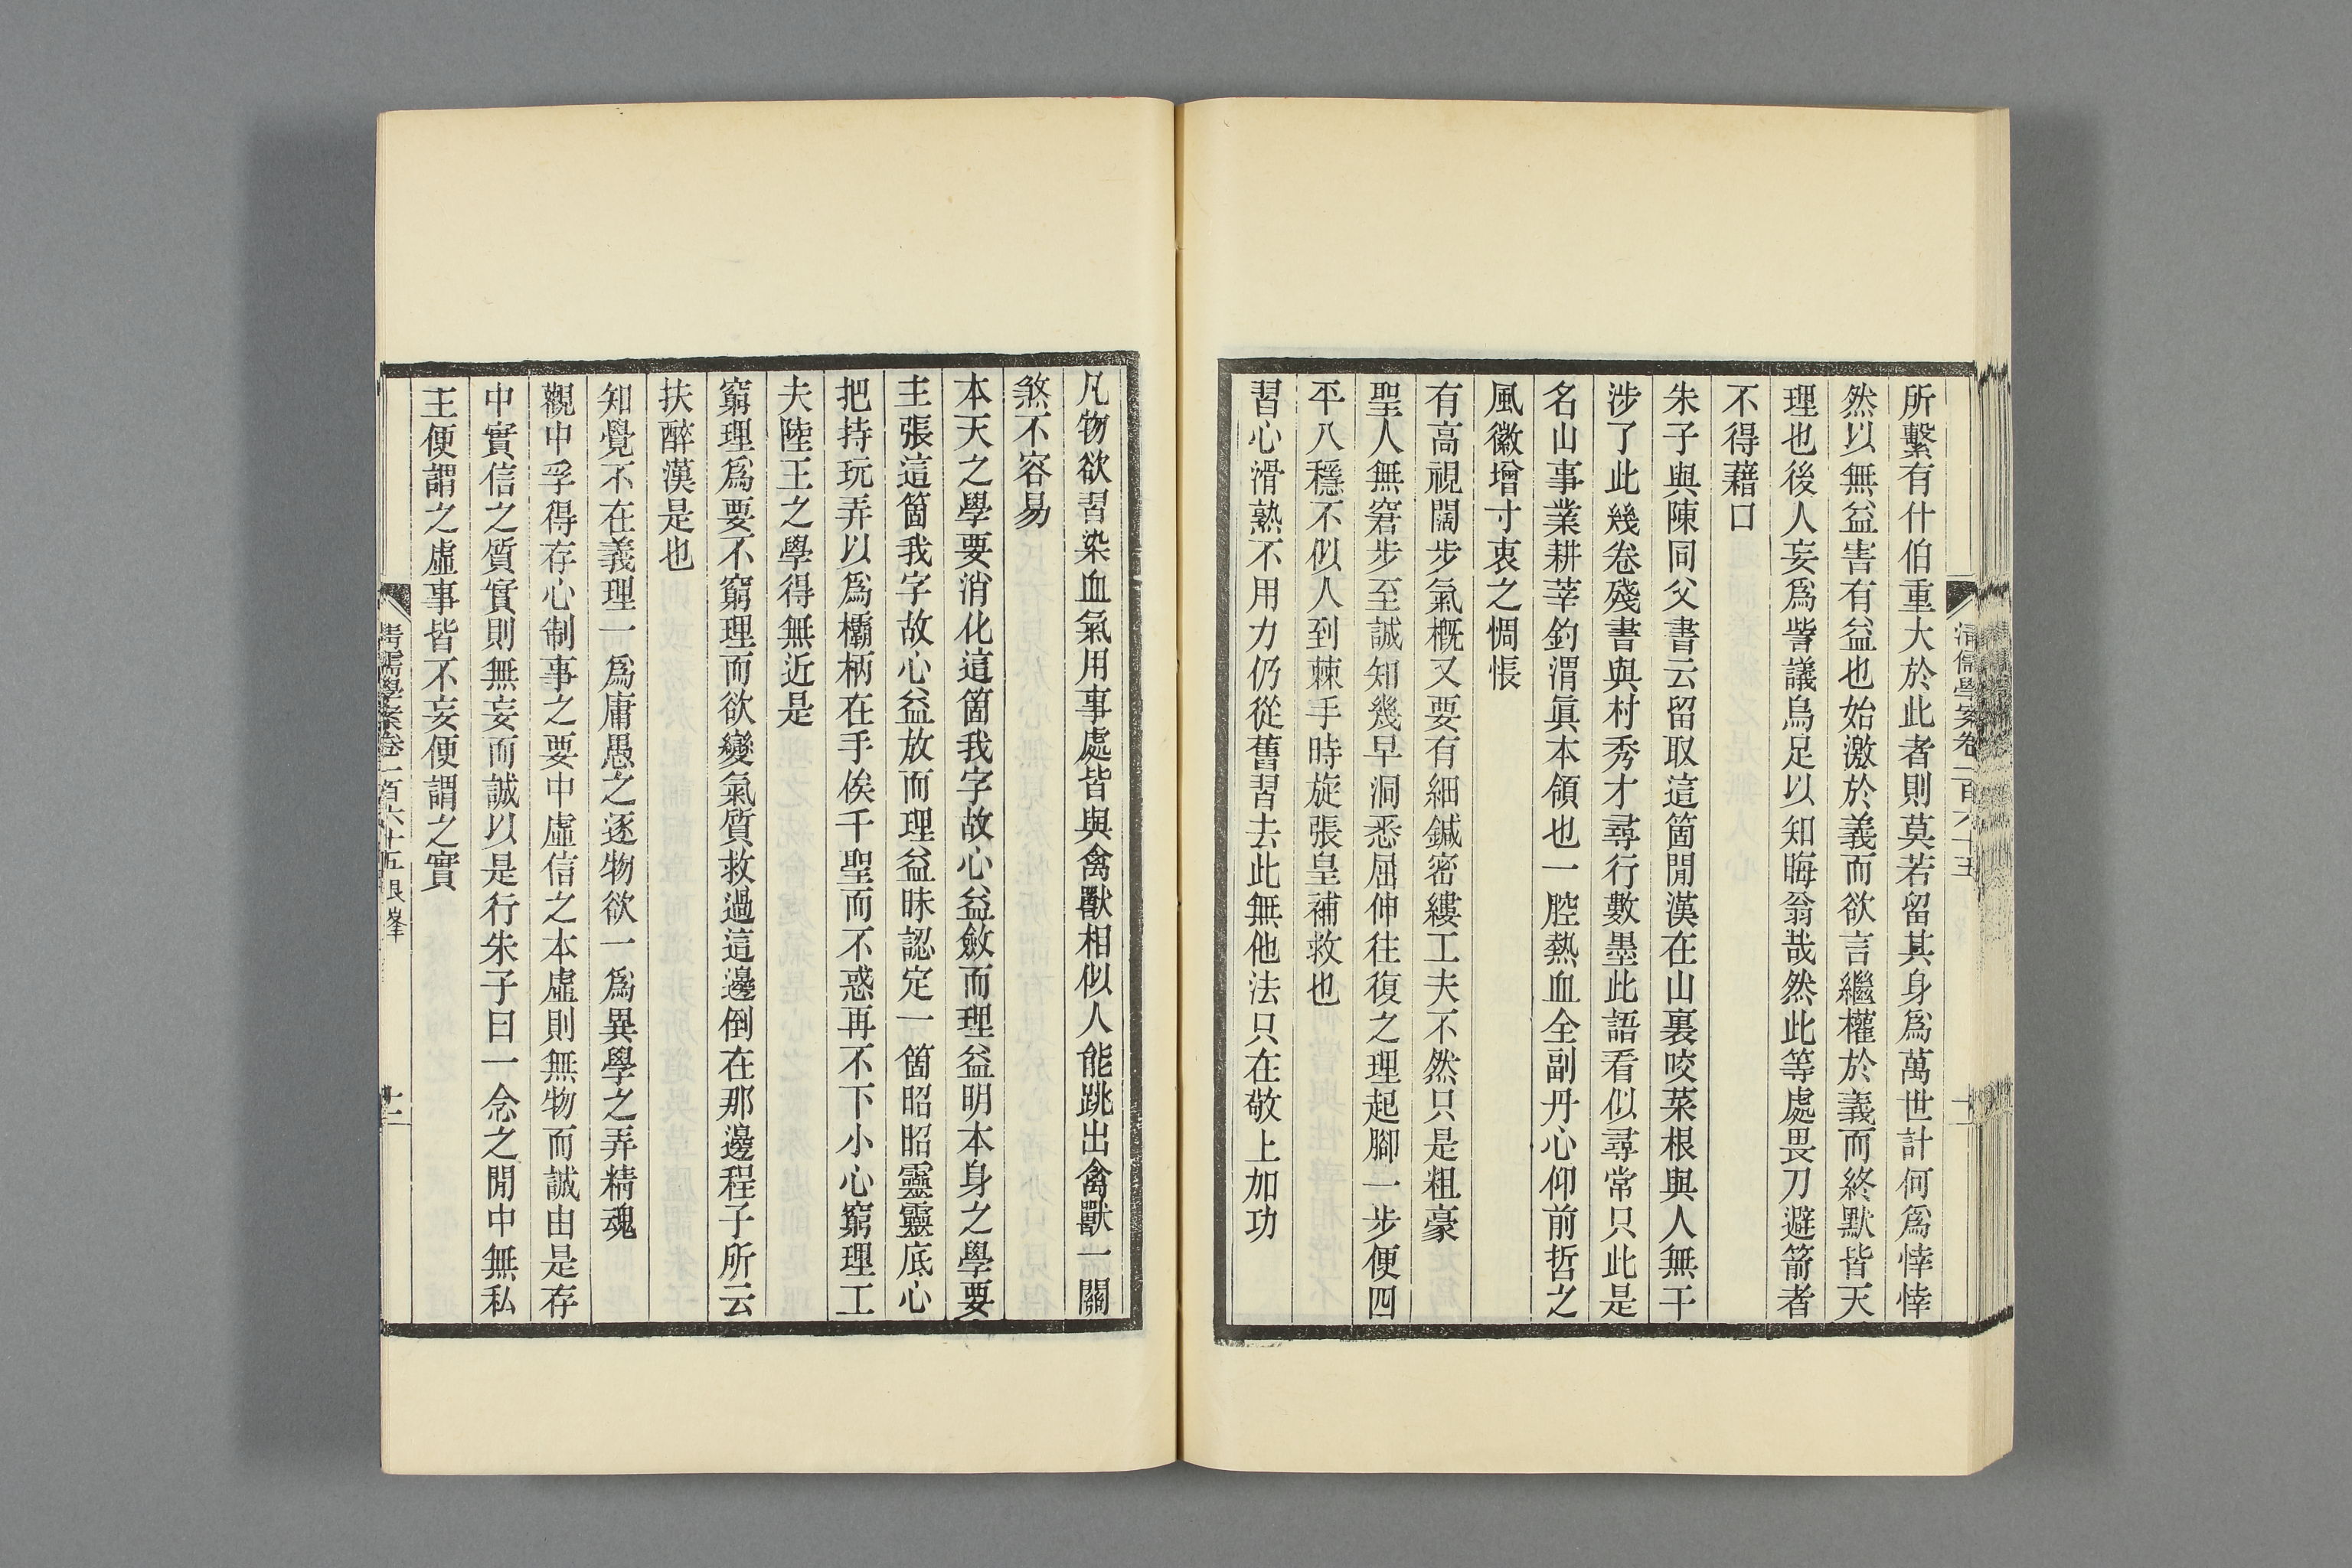 清儒學案卷一百六十五
所繫有什伯重大於此者則莫若留其身爲萬世計何爲悻悻
然以無益害有益也始激於義而欲言繼權於義而終默皆天
理也後人妄爲訾議烏足以知晦翁哉然此等處畏刀避箭者
不得藉口
朱子與陳同父書云留取這箇閒漢在山裏咬菜根與人無干
涉了此幾卷殘書與村秀才尋行數墨此語看似尋常只此是
名山事業耕莘釣渭眞本領也一腔熱血全副丹心仰前哲之
風徽增寸衷之惆悵
有高視闊步氣概又要有細鍼密縷工夫不然只是粗豪
聖人無窘步至誠知幾早洞悉屈伸往復之理起腳一步便四
平八穩不似人到棘手時旋張皇補救也
習心滑熟不用力仍從舊習去此無他法只在敬上加功
凡物欲習染血氣用事處皆與禽獸相似人能跳出禽獸一關
煞不容易
本天之學要消化這箇我字故心益斂而理益明本身之學要
主張這箇我字故心益放而理益昧認定一箇昭昭靈靈底心
把持玩弄以爲欛柄在手俟千聖而不惑再不下小心窮理工
夫陸王之學得無近是
窮理爲要不窮理而欲變氣質救過這邊倒在那邊程子所云
扶醉漢是也
知覺不在義理一爲庸愚之逐物欲一爲異學之弄精魂
觀中孚得存心制事之要中虛信之本虛則無物而誠由是存
中實信之質實則無妄而誠以是行朱子曰一念之閒中無私
主便謂之虛事皆不妄便謂之實
清儒學案卷一百六十五 艮峯
十二